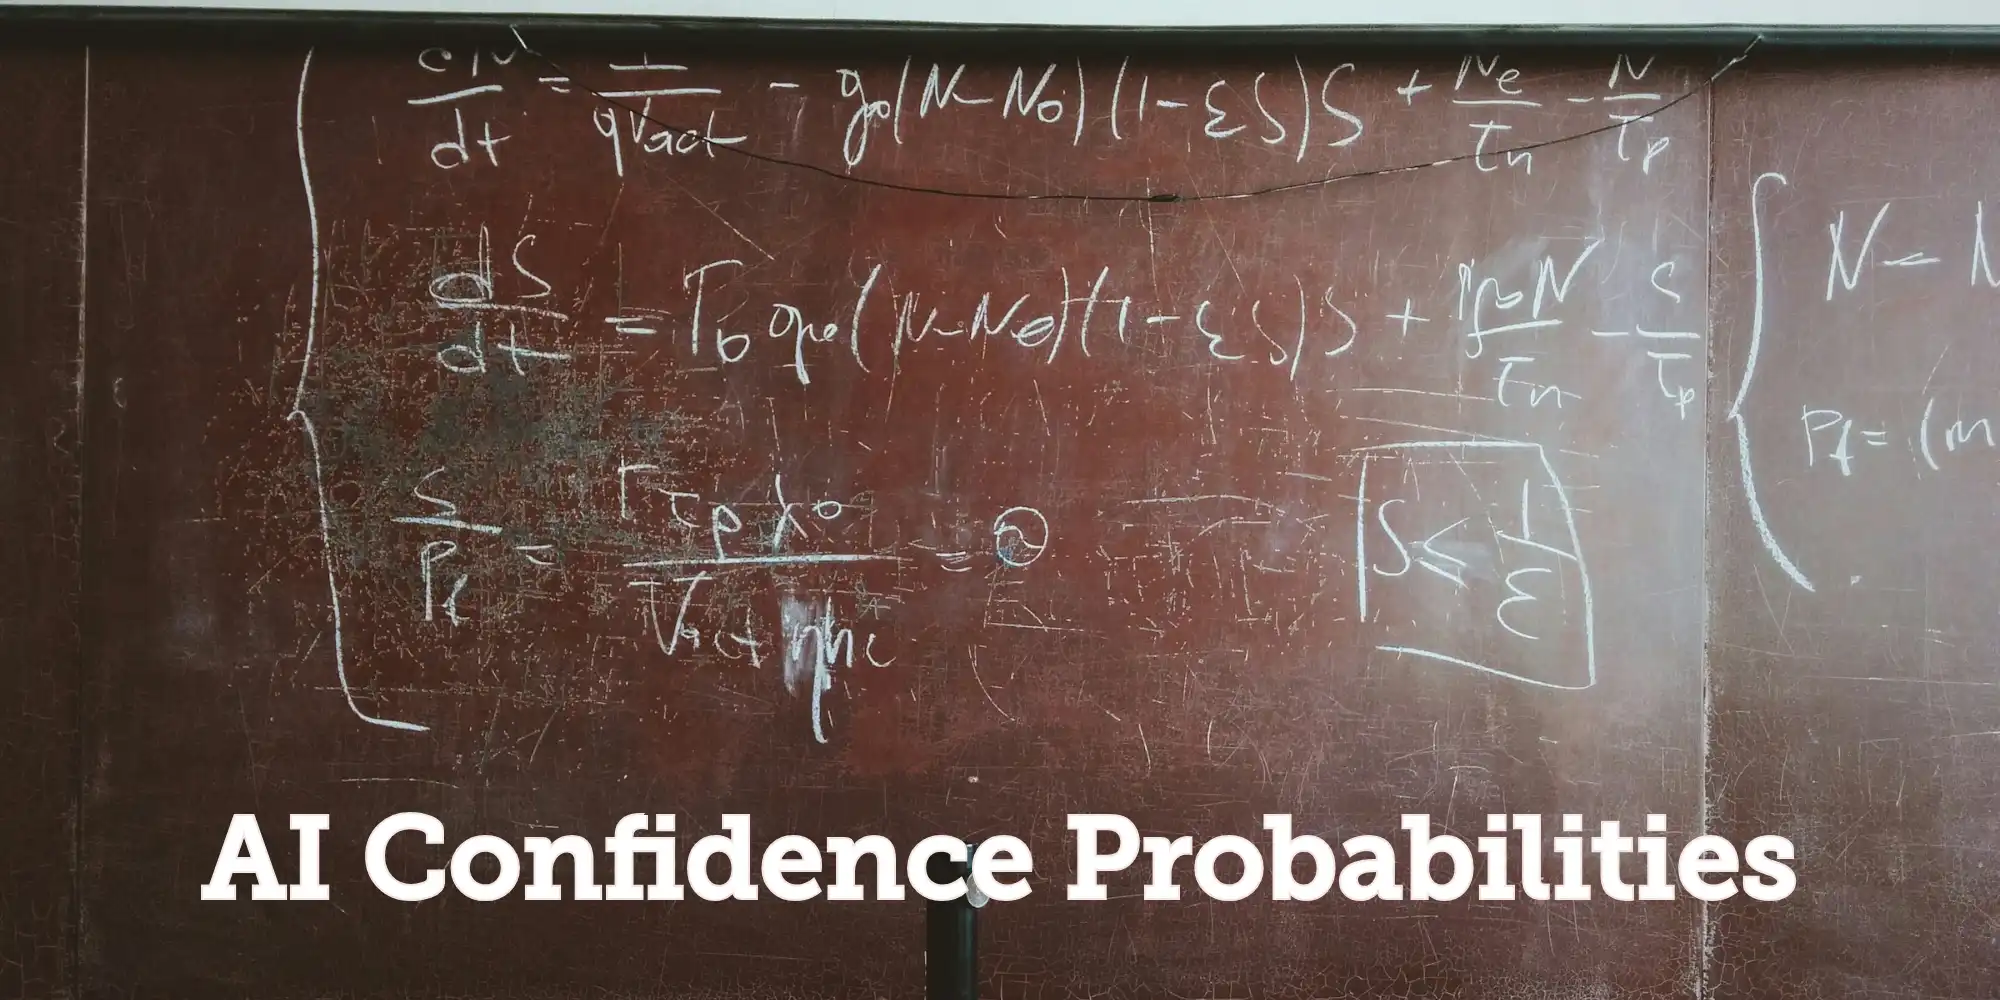 dN/dt = 1/qVact - g0(N-N0)(1-εS)S + Ne/τn - N/τp
dS/dt = Γ0 g0(N-N0)(1-εS)S + N/τn - S/τp
S/Pf = Γτpλ0/Vact ηhc =
S ≤ 1/ε
N - N
Pf = (m
AI Confidence Probabilities